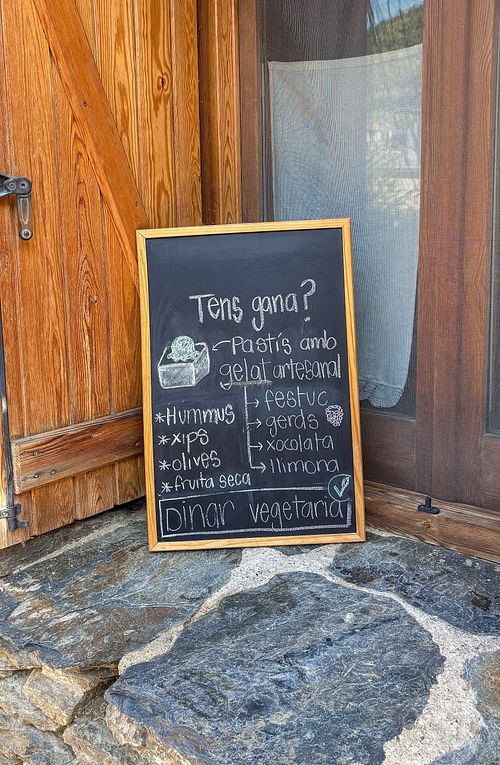 Tens gana?
Pastís amb
gelat artesanal
festuc
gerds
xocolata
llimona
*Hummus
*xips
*olives
*fruita seca
Dinar vegetarià